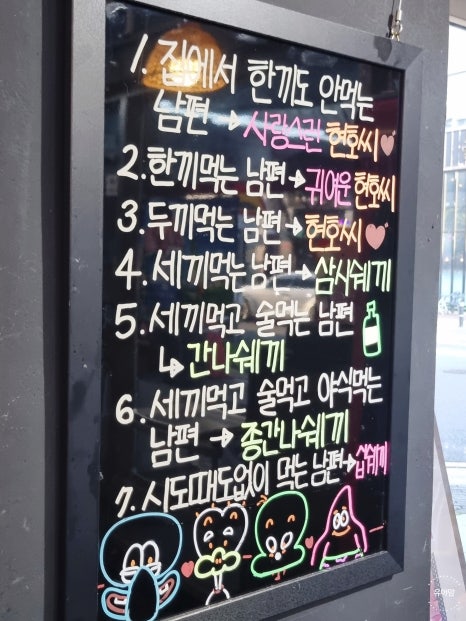 1. 집에서 한끼도 안먹는
남편 → 사랑스란 현호씨
2. 한끼먹는 남편 → 귀여운 현호씨
3. 두끼먹는 남편 → 현호씨
4. 세끼먹는 남편 → 삼시쉐끼
5. 세끼먹고 술먹는 남편
↳ 간나쉐끼
6. 세끼먹고 술먹고 야식먹는
남편 → 종간나쉐끼
7. 시도때도없이 먹는 남편 → 십쉐끼